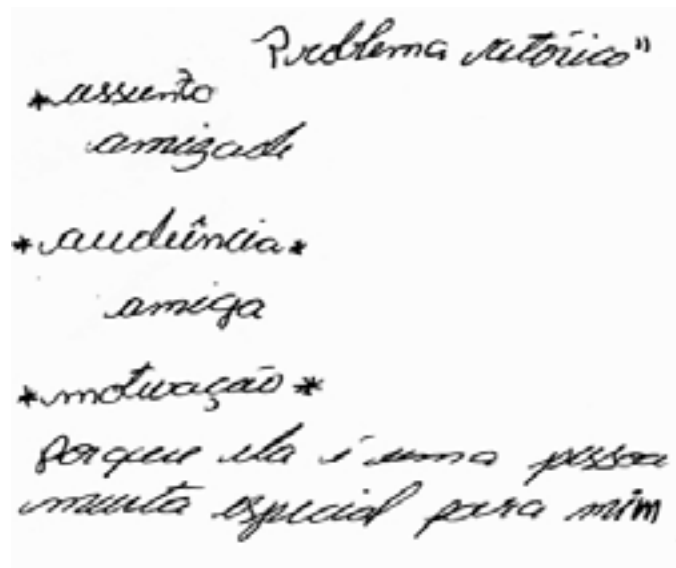 Problema retórico"
*assunto
amizade
*audiência*
amiga
*motivação*
porque ela é uma pessoa
muita especial para mim